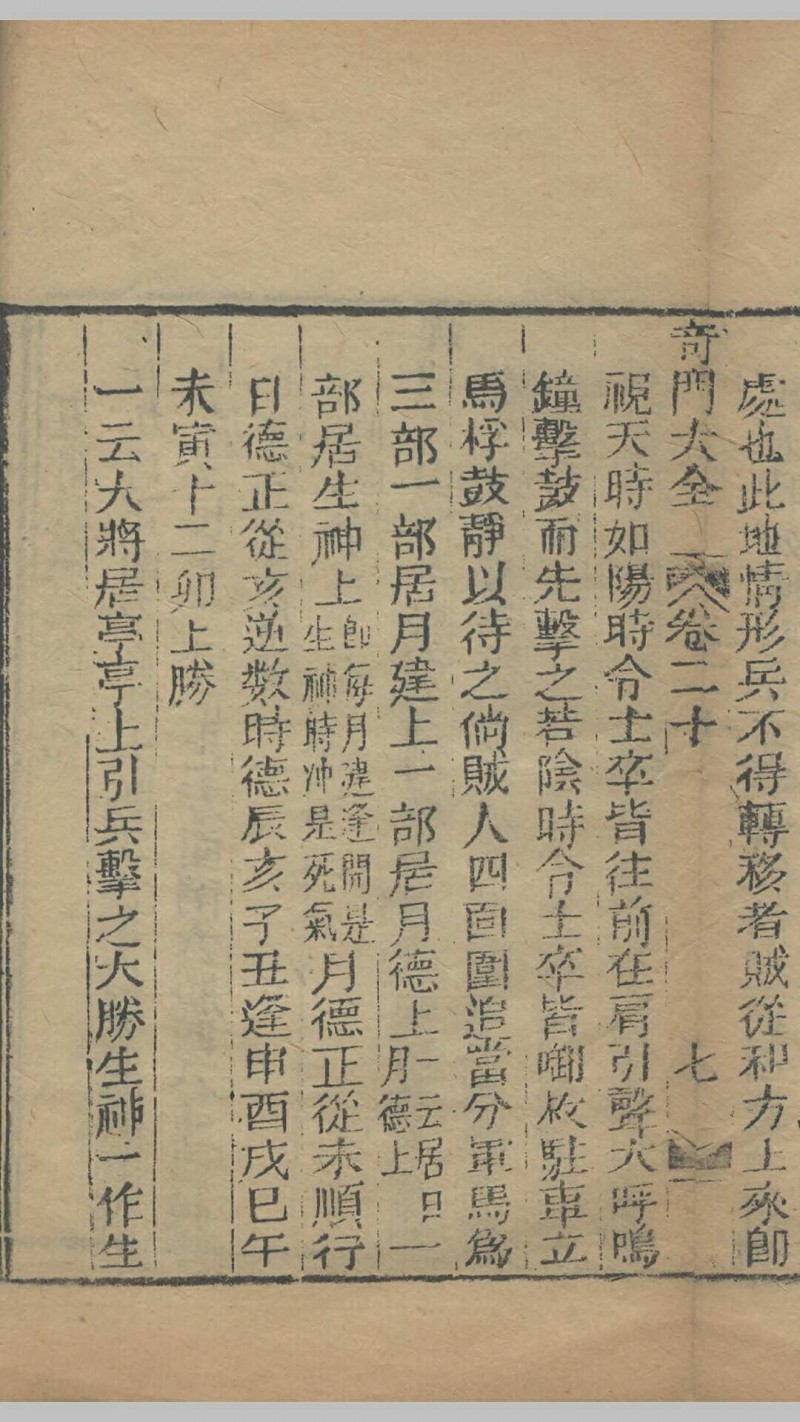 處也此地情形兵不得轉移者賊從和方上來卽
奇門大全 卷二十 七
視天時如陽時令士卒皆往前在肩引聲大呼鳴
鐘擊鼓而先擊之若陰時令士卒皆啣枚駐車立
馬桴鼓靜以待之倘賊人四面圍追當分軍馬爲
三部一部居月建上一部居月德上一云居日月德上一
部居生神上卽每月建逢開是生神時冲是死氣月德正從未順行
日德正從亥逆数時德辰亥子丑逢申酉戌巳午
未寅十二卯上勝
一云大將居亭亭上引兵擊之大勝生神一作生